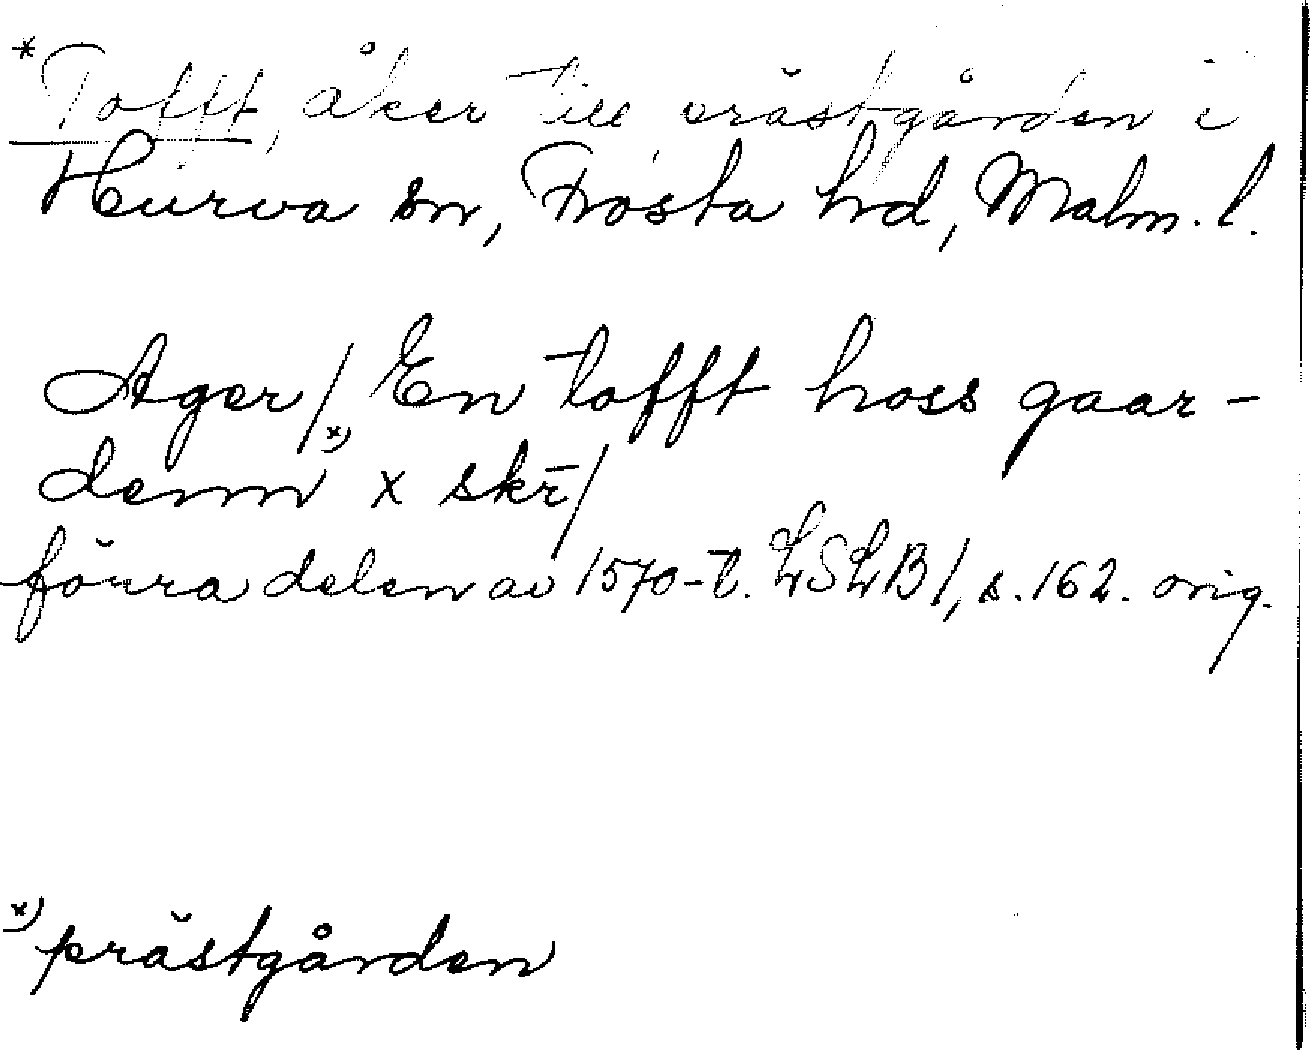 *Tofft, åker till prästgården i
Hurva sn, Frosta hd, Malm. l.
Ager/ En tofft hoss gaar-
denn x) x skr/
förra delen av 1570-t. LSLB1, s. 162. orig.
x) prästgården